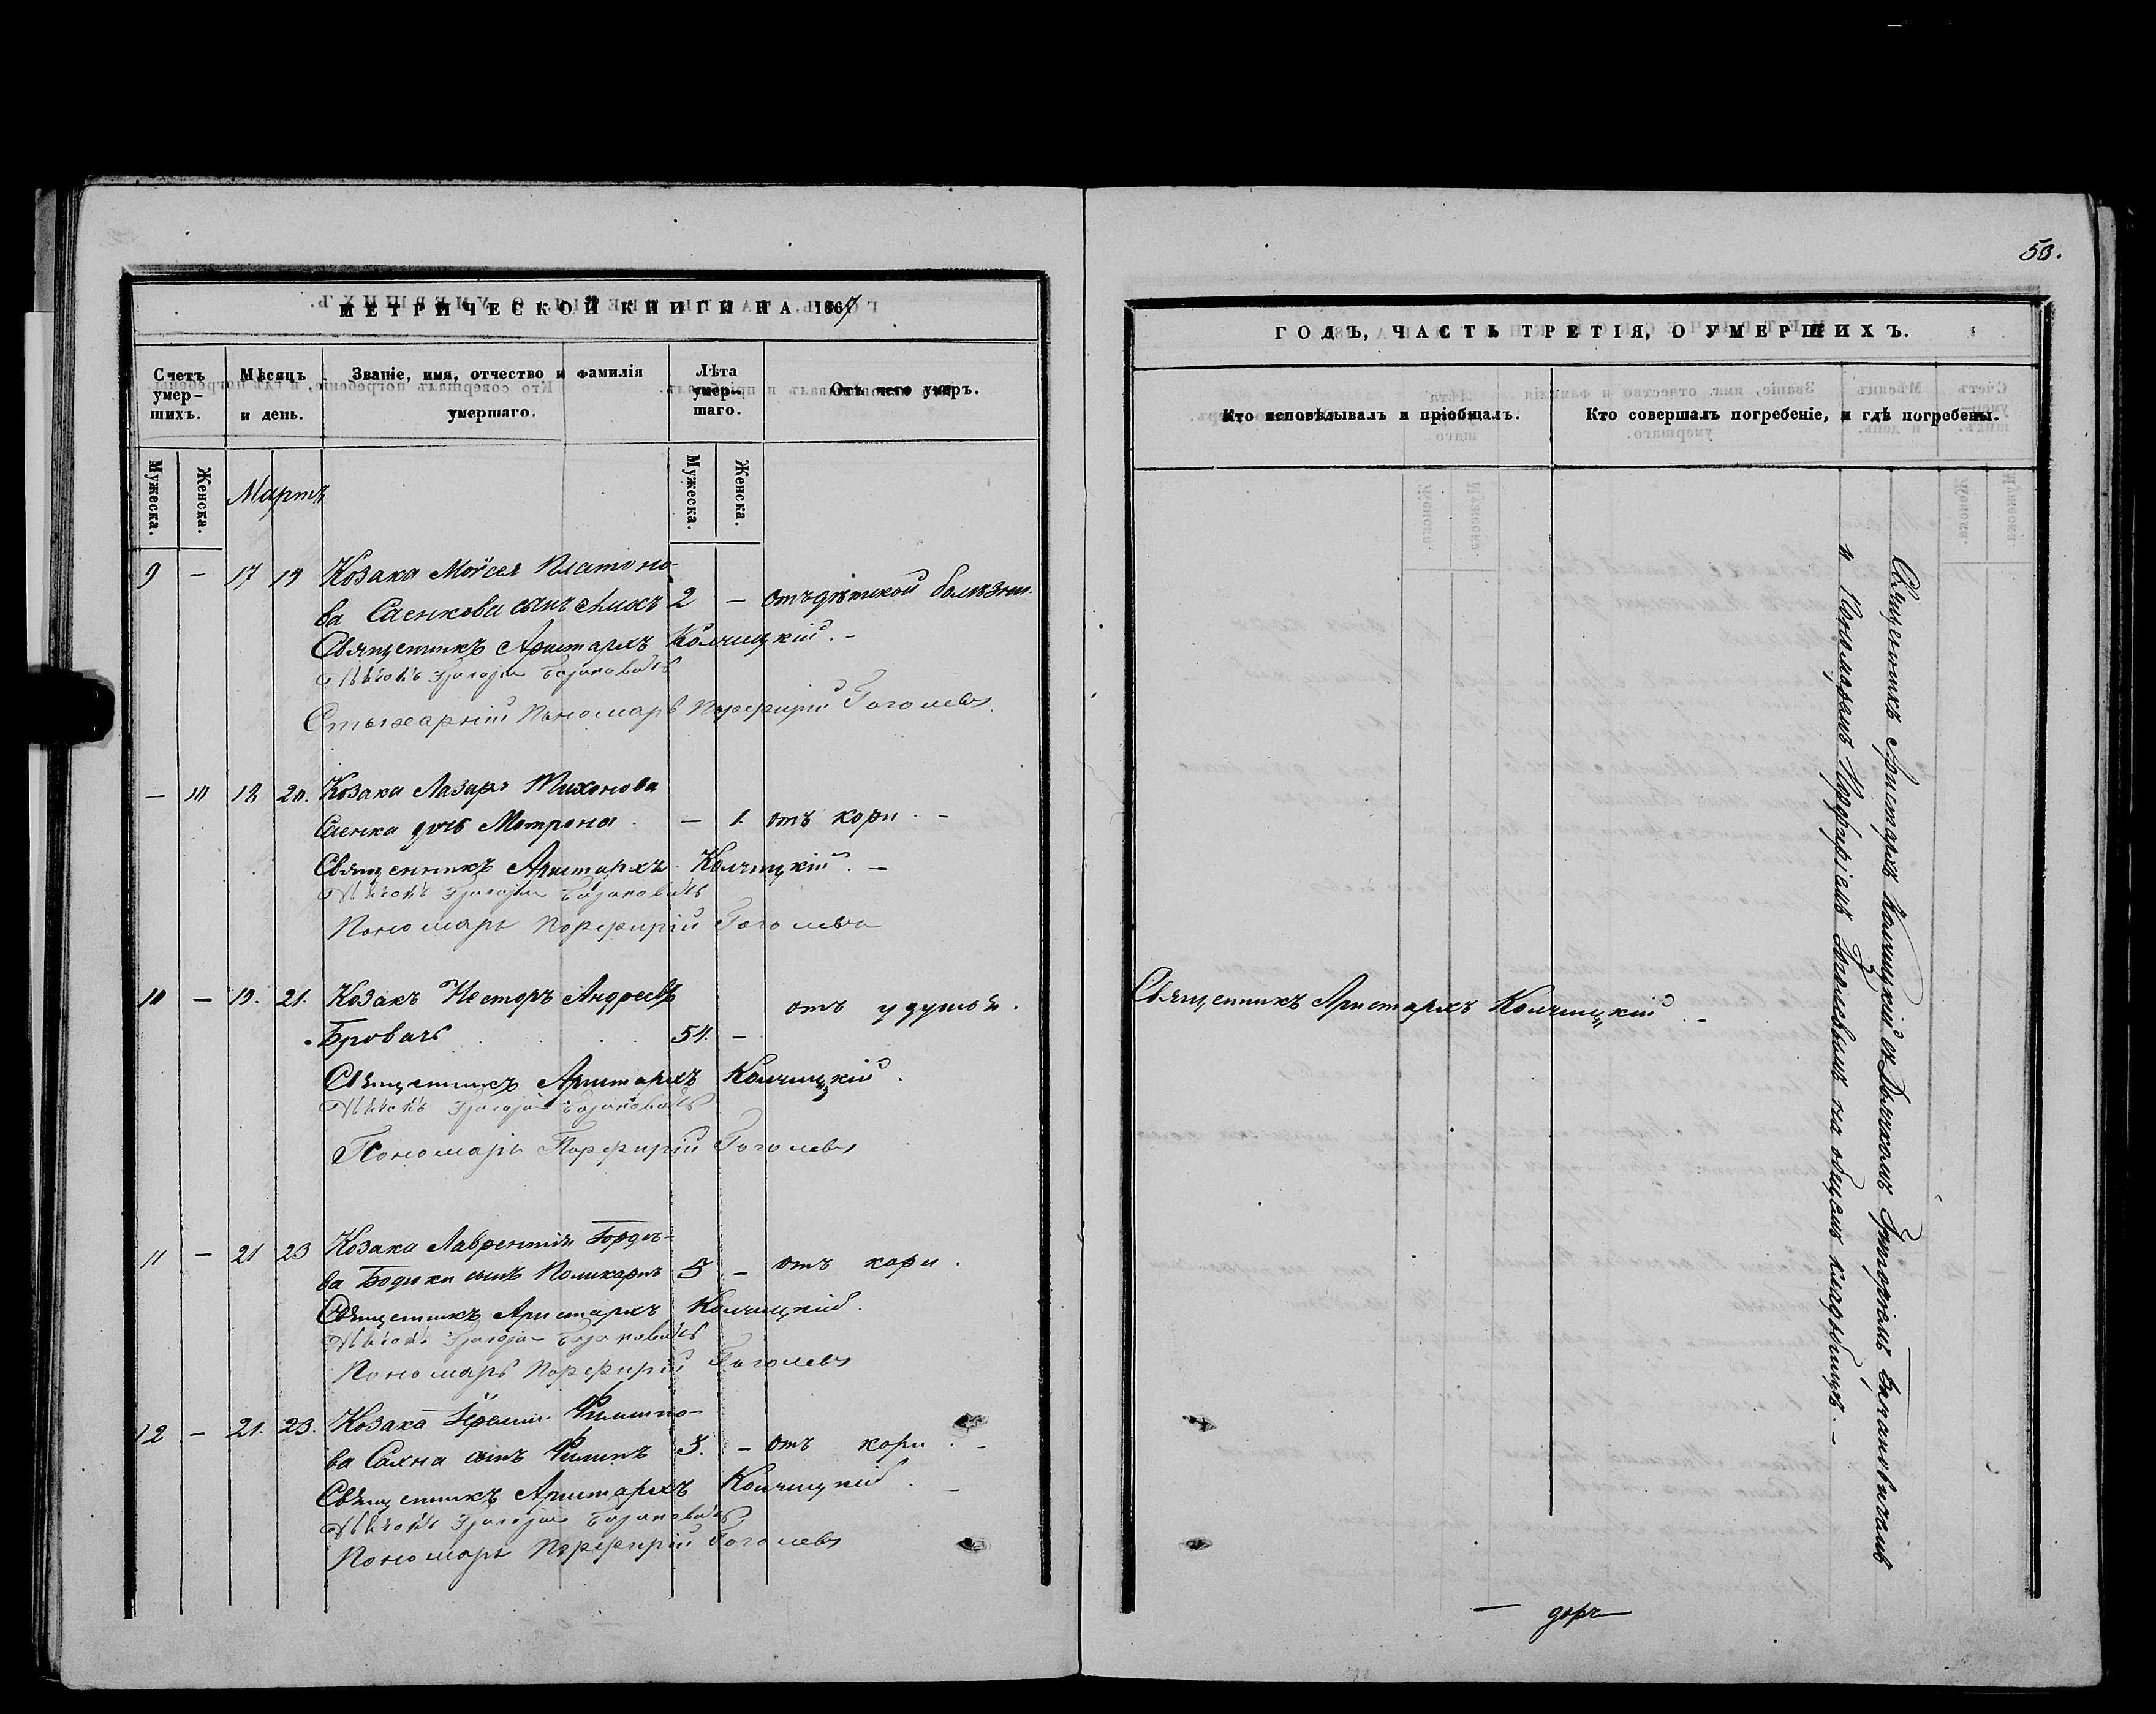 МЕТРИЧЕСКОЙ КНИГИ НА 1867
Счетъ умер-шихъ.
Мѣсяцъ и день.
Званіе, имя, отчество и фамилія умершаго.
Лѣта умер-шаго.
Отъ чего умеръ.
Мужеска.
Женска.
Мартъ
Мужеска.
Женска.
9 — 17 19 Козака Моѵсея Платоно-
ва Саенкова сынъ 2 — отъ дѣтской болѣзни.
Священникъ Аристархъ Колчицкій. —
Дьячокъ Григорій
Стихарній Пономарь Порфирій Гоголевъ
— 10 18 20. Козака Лазаря Тихонова
Саенка дочь Мотрона — 1. отъ кори. —
Священникъ Аристархъ Колчицкій. —
Дьячокъ Григорій
Пономарь Порфирій Гоголевъ
10 — 19. 21. Козакъ Несторъ Андреевъ
Бровачь 54. — отъ удушья.
Священникъ Аристархъ Колчицкій.
Дьячокъ Григорій
Пономарь Порфирій Гоголевъ
11 — 21 23 Козака Лаврентія Гордѣе-
ва Бодюки сынъ Поликарпъ 5 — отъ кори.
Священникъ Аристархъ Колчицкій.
Дьячокъ Григорій
Пономарь Порфирій Гоголевъ
12 — 21. 23. Козака Филиппо-
ва Сахна сынъ Филипъ 3. — отъ кори. —
Священникъ Аристархъ Колчицкій. —
Дьячокъ Григорій
Пономарь Порфирій Гоголевъ
53.
ГОДЪ, ЧАСТЬ ТРЕТІЯ, О УМЕРШИХЪ.
Кто исповѣдывалъ и пріобщалъ.
Кто совершалъ погребеніе, и гдѣ погребены.
Священникъ Аристархъ Колчицкій. —
Священникъ Аристархъ Колчицкій съ Дьячкомъ Григоріемъ
и Пономаремъ Порфиріемъ Гоголевымъ на общемъ кладбищѣ. —